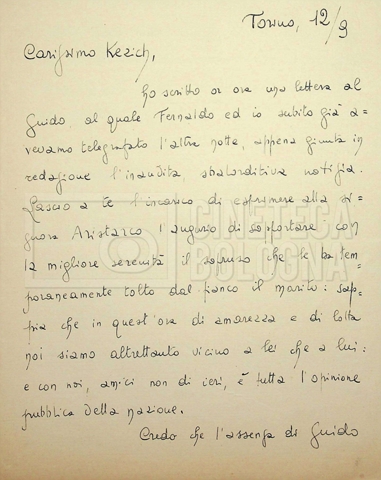 Torino, 12/9
Carissimo Kezich,
ho scritto or ora una lettera al
Guido, al quale Fernaldo ed io subito già a=
vevamo telegrafato l'altra notte, appena giunta in
redazione l'inaudita, sbalorditiva notizia.
Lascio a te l'incarico di esprimere alla si=
gnora Aristarco l'augurio di sopportare con
la migliore serenità il sopruso che le ha tem=
poraneamente tolto dal fianco il marito: sap=
pia che in quest'ora di amarezza e di lotta
noi siamo altrettanto vicino a lei che a lui:
e con noi, amici non di ieri, è tutta l'opinione
pubblica della nazione.
Credo che l'assenza di Guido
CINETECA
BOLOGNA